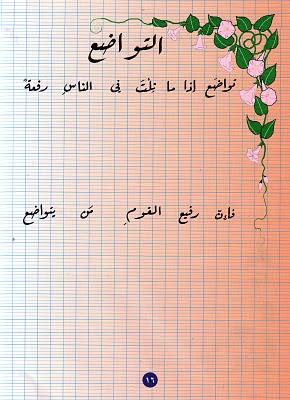 التواضع
تواضَع إذا ما نِلْتَ في الناسِ رفعةً
فإن رفيع القومِ مَن يتواضع
١٦